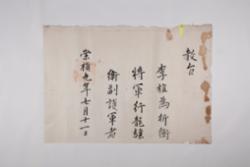 教旨
李植為折衝
將軍行龍驤
衛副護軍者
崇禎九年七月十一日